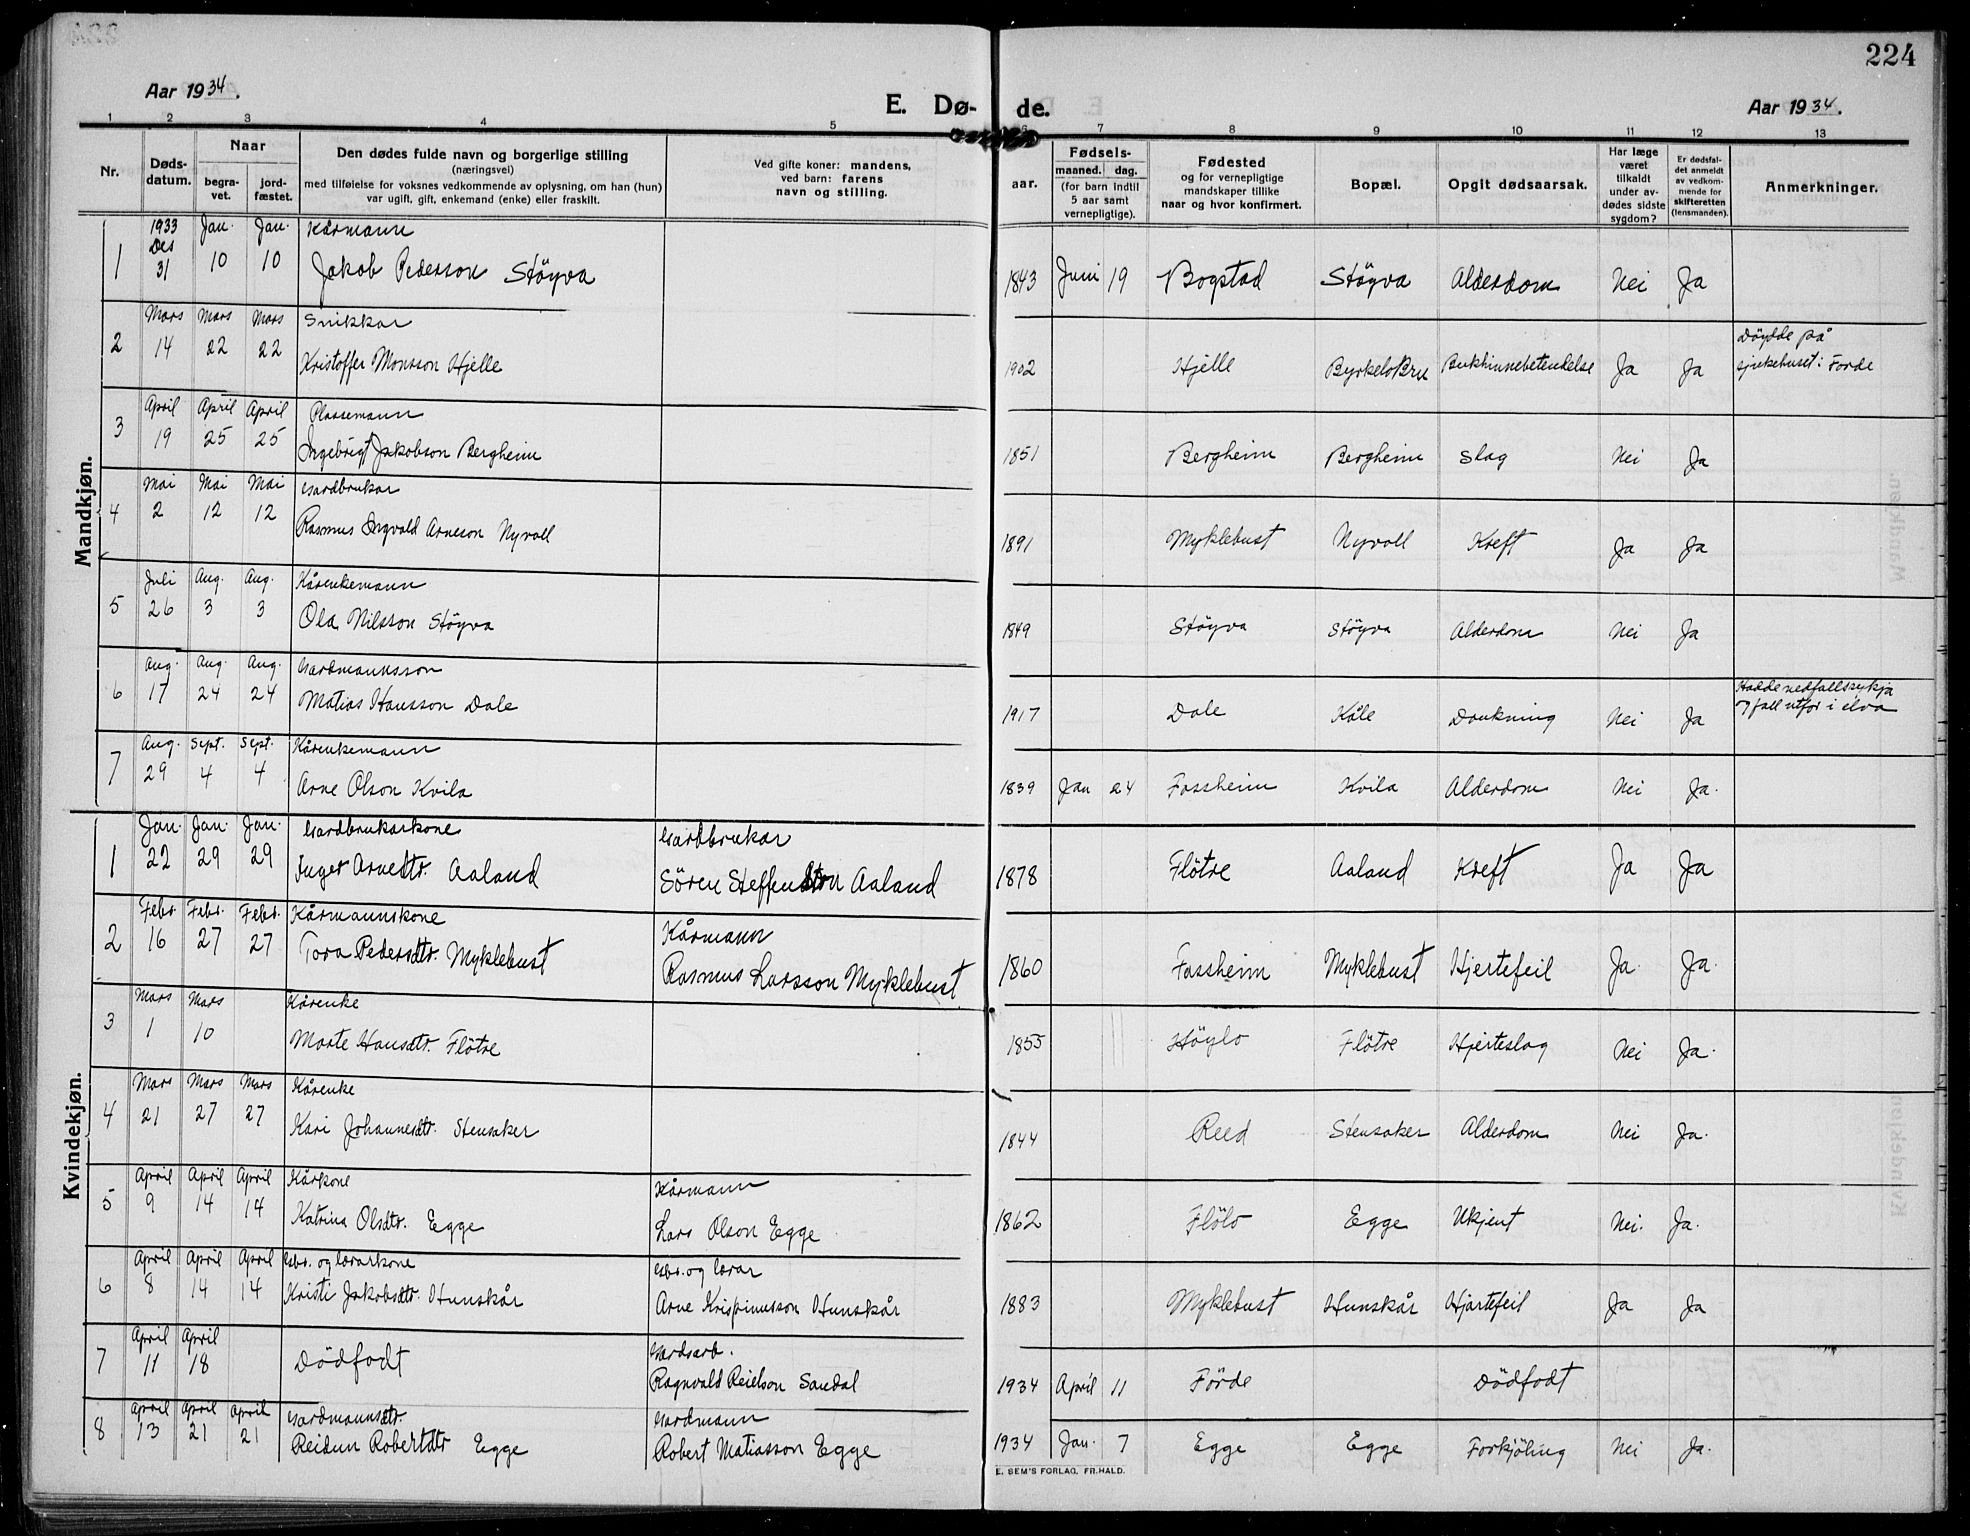 224
Aar 1934.
E. Dø-
de.
Aar 1934.
1 2 3 4 5 6 7 8 9 10 11 12 13
Nr.
Døds-
datum.
Naar
begra-
vet.
jord-
fæstet.
Den dødes fulde navn og borgerlige stilling
(næringsvei)
med tilføielse for voksnes vedkommende av oplysning, om han (hun)
var ugift, gift, enkemand (enke) eller fraskilt.
Ved gifte koner: mandens,
ved barn: farens
navn og stilling.
Fødsels-
aar.
maaned.
dag.
(for barn indtil
5 aar samt
vernepligtige).
Fødested
og for vernepligtige
mandskaper tillike
naar og hvor konfirmert.
Bopæl.
Opgit dødsaarsak.
Har læge
været
tilkaldt
under av-
dødes sidste
sygdom?
Er dødsfal-
det anmeldt
av vedkom-
mende for
skifteretten
(lensmanden).
Anmerkninger.
Mandkjøn.
1933 Jan. Jan. Kårmann
1 Des 31 10 10 Jakob Pederson Støyva 1843 Juni 19 Bogstad Støyva Alderdom Nei Ja
Mars Mars Mars Snikkar
2 14 22 22 Kristoffer Monsson Hjelle 1902 Hjelle Byrkelo Bru Bukhinnebetendelse Ja Ja Döydde på
sjukehuset i Förde
April April April Plassemann
3 19 25 25 Ingebrigt Jakobson Bergheim 1851 Bergheim Bergheim Slag Nei Ja
Mai Mai Mai Gardbrukar
4 2 12 12 Rasmus Ingvald Arneson Nyvoll 1891 Myklebust Nyvoll Kreft Ja Ja
Juli Aug. Aug. Kårenkemann
5 26 3 3 Ola Nilsson Støyva 1849 Støyva Støyva Alderdom Nei Ja
Aug. Aug. Aug. Gardmannsson
6 17 24 24 Matias Hansson Dale 1917 Dale Dale Drukning Nei Ja Hadde nedfallssykja
og fall utfor i elva
Aug. Sept. Sept. Kårenkemann
7 29 4 4 Arne Olson Kvila 1839 Jan 24 Fossheim Kvila Alderdom Nei Ja.
Kvindekjøn.
Jan. Jan. Jan. Gardbrukarkone Gardbrukar
1 22 29 29 Inger Arnedtr. Aaland Sören Steffenson Aaland 1878 Flötre Aaland Kreft Ja Ja
Febr. Febr. Febr. Kårmannskone Kårmann
2 16 27 27 Tora Pedersdtr. Myklebust Rasmus Larsson Myklebust 1860 Fossheim Myklebust Hjertefeil Ja. Ja.
Mars Mars Kårenke
3 1 10 Marte Hansdtr. Flötre 1855 Höylo Flötre Hjerteslag Nei Ja.
Mars Mars Mars Kårenke
4 21 27 27 Kari Johannesdtr. Stensaker 1844 Reed Stensaker Alderdom Nei Ja.
April April April Kårkone Kårmann
5 9 14 14 Katrina Olsdtr. Egge Lars Olson Egge 1862 Flölo Egge Ukjent Nei. Ja.
April April April Gbr. og lærarkone Gbr. og lærar
6 8 14 14 Kristi Jakobsdtr. Hunskår Arne Krispinusson Hunskår 1883 Myklebust Hunskår Hjartefeil Ja Ja
April April Gardsarb.
7 11 18 Dödfödt Ragnvald Reielson Sandal 1934 April 11 Förde Dödfodt
April April April Gardmannsdtr. Gardmann
8 13 21 21 Reidun Robertdtr Egge Robert Matiasson Egge 1934 Jan. 7 Egge Egge Forkjöling Nei Ja.
E. SEM'S FORLAG, FR.HALD.